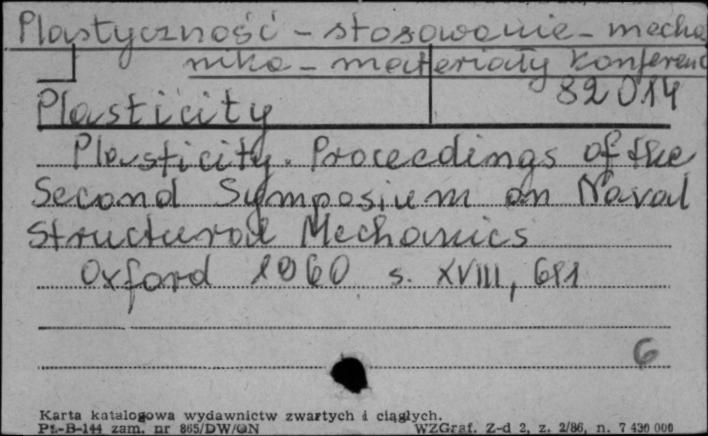 Plastyczność - stosowanie - mecha
nika - materiały konferenc
82014
Plasticity
Plasticity. Proceedings of the
Second Symposium on Naval
Structural Mechanics
Oxford 1960 s. XVIII, 681
6
Karta katalogowa wydawnictw zwartych i ciągłych.
Pt.-B-144 zam. nr 865/DW/ON WZGraf. Z-d 2, z. 2/86, n. 7 430 000